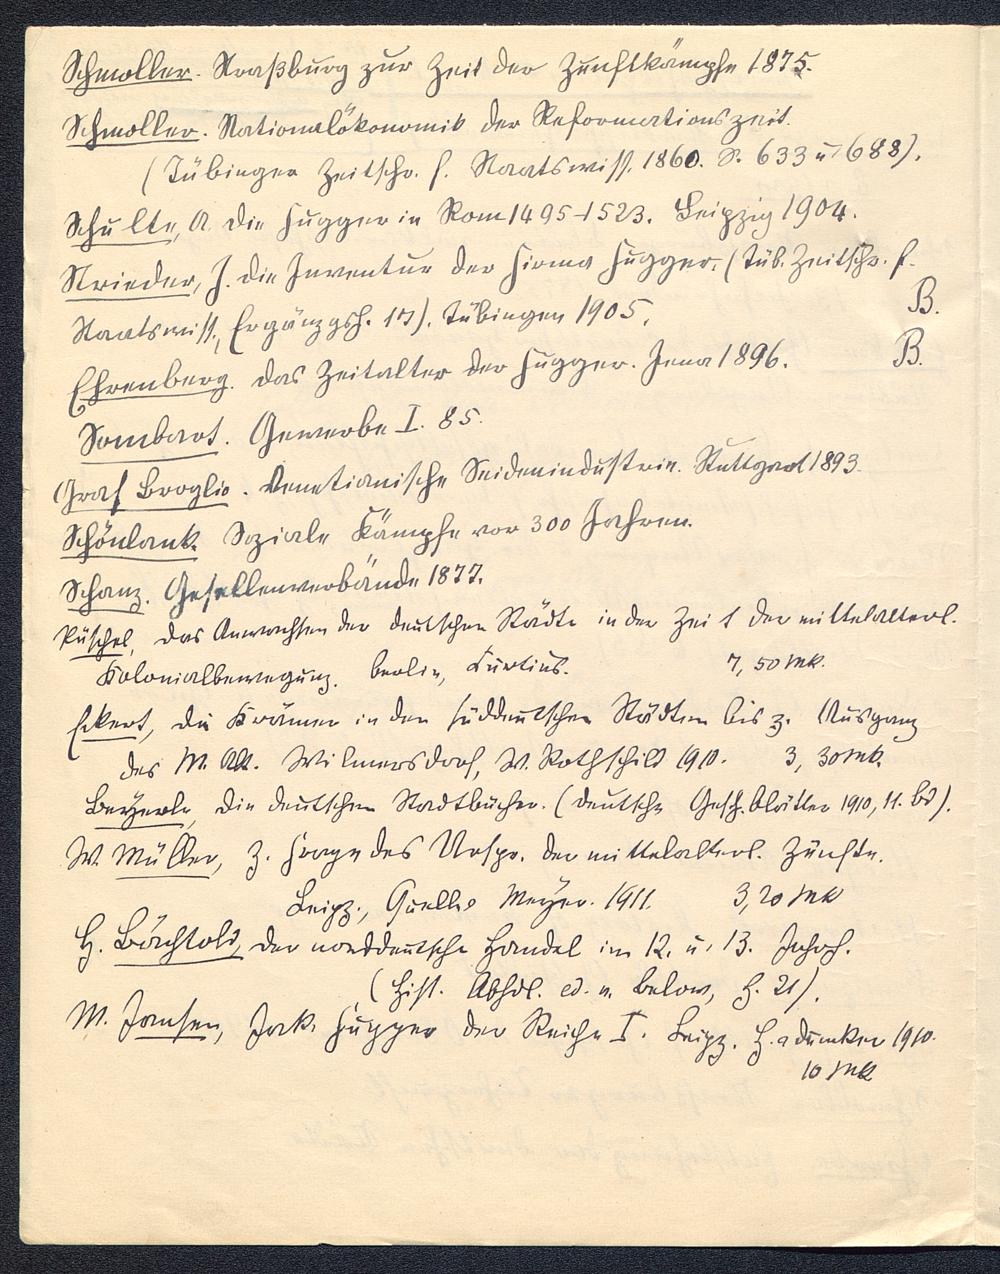 Schmoller. Straßburg zur Zeit der Zunftkämpfe 1875.
Schmoller. Nationalökonomik der Reformationszeit.
(Tübinger Zeitschr. f. Staatswiss. 1860. S. 633 u. 688).
Schulte, A. die Fugger in Rom 1495-1523. Leipzig 1904.
Strieder, J. die Inventur der Firma Fugger. (Tüb. Zeitschr. f.
Staatswiss., Ergänzgsh. 17). Tübingen 1905. B.
Ehrenberg. das Zeitalter der Fugger. Jena 1896. B.
Sombart. Gewerbe I. 85.
Graf Broglio. Venetianische Seidenindustrie. Stuttgart 1893.
Schönlank. Soziale Kämpfe vor 300 Jahren.
Schanz. Gesellenverbände 1877.
Püschel, das Anwachsen der deutschen Städte in der Zeit der mittelalterl.
Kolonialbewegung. Berlin, Curtius. 7,50 Mk.
Eckert, die Krämer in den süddeutschen Städten bis z. Ausgang
des M. Alt. Wilmersdorf, W. Rothschild 1910. 3,30 Mk.
Beyerle, die deutschen Stadtbücher. (Deutsche Gesch. Blätter 1910, 11. Bd).
W. Müller, z. Frage des Urspr. der mittelalterl. Zünfte.
Leipz., Quelle & Meyer. 1911. 3,20 Mk
H. Bächtold, der norddeutsche Handel im 12. u. 13. Jahrh.
(Hist. Abhdl. ed. v. Below, H. 21).
M. Jansen, Jak. Fugger der Reiche I. Leipz. H. & Duncker 1910.
10 Mk